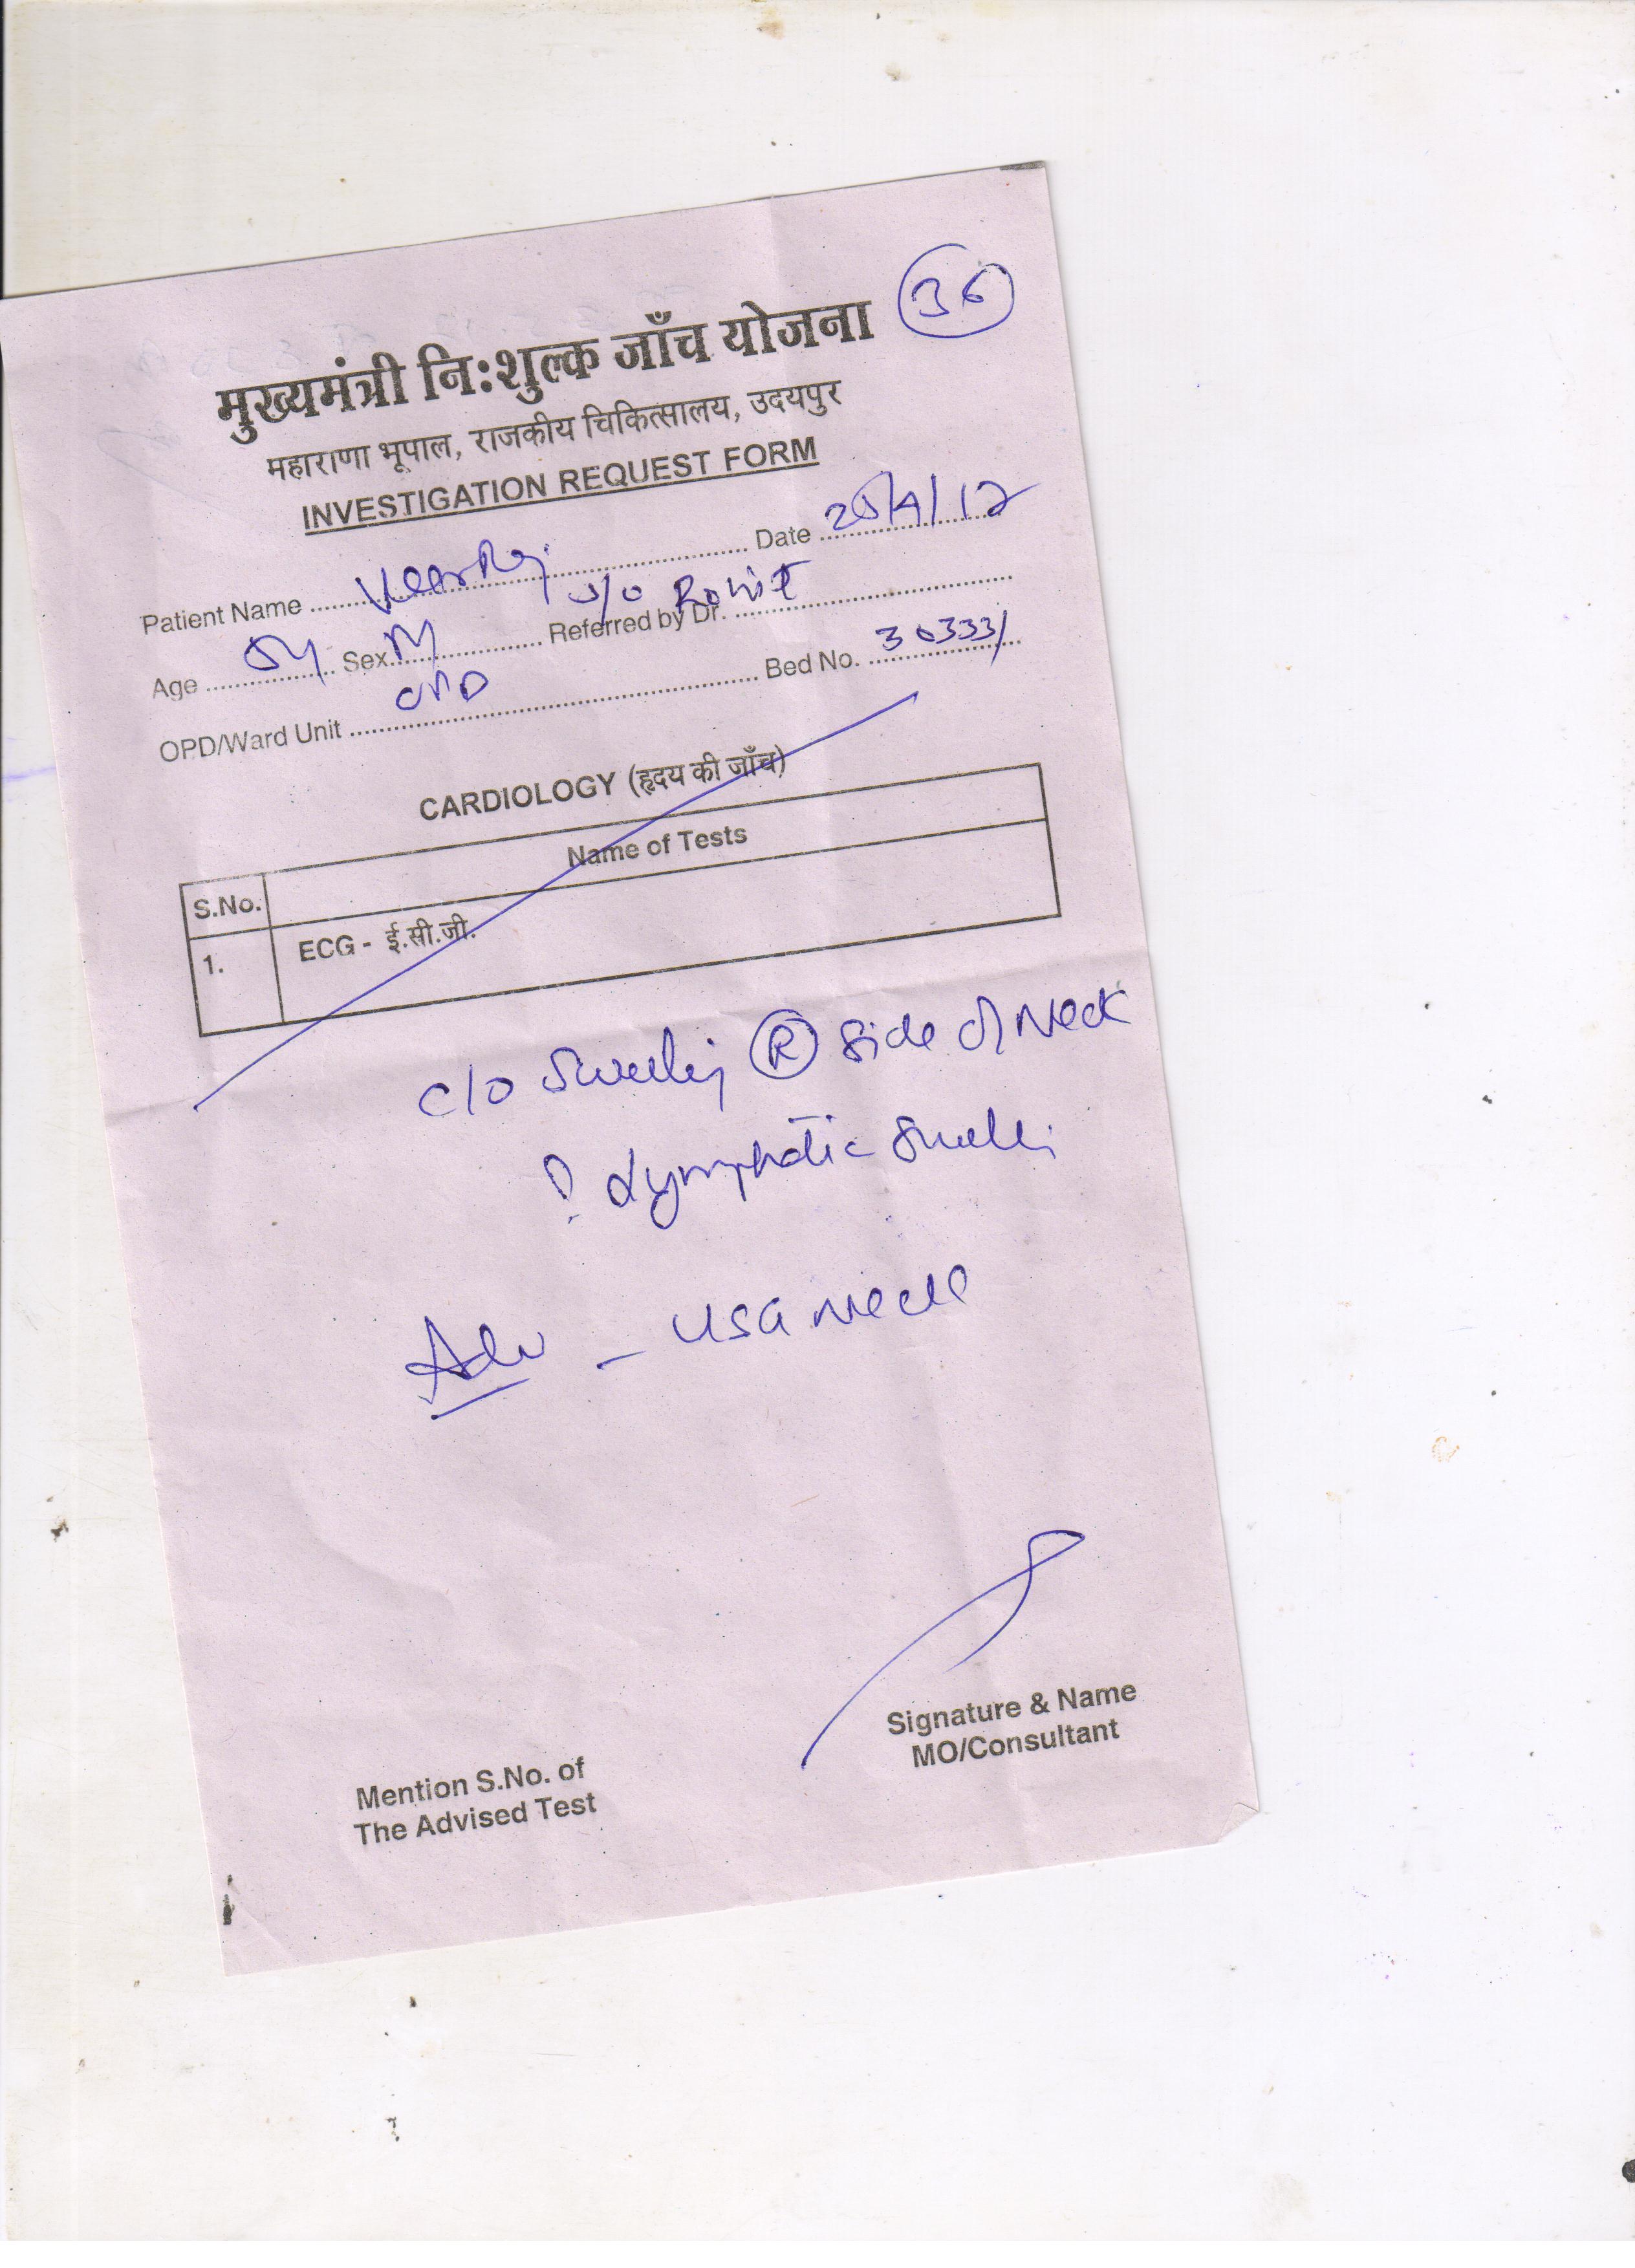 36
मुख्यमंत्री निःशुल्क जाँच योजना
महाराणा भूपाल, राजकीय चिकित्सालय, उदयपुर
INVESTIGATION REQUEST FORM
Patient Name Date
s/o Rohit
Age Sex M Referred by Dr.
OPD/Ward Unit OPD Bed No. 30333/
CARDIOLOGY (हृदय की जाँच)
S.No. Name of Tests
1. ECG - ई.सी.जी.
c/o Swelling R side of Neck
? Lymphatic Swelli
Adv - USG Neck
Signature & Name
MO/Consultant
Mention S.No. of
The Advised Test